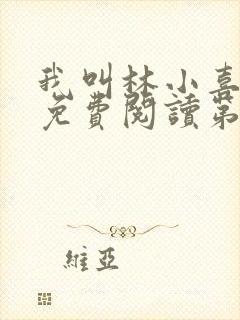 我叫林小喜
免費閱讀第
維亞